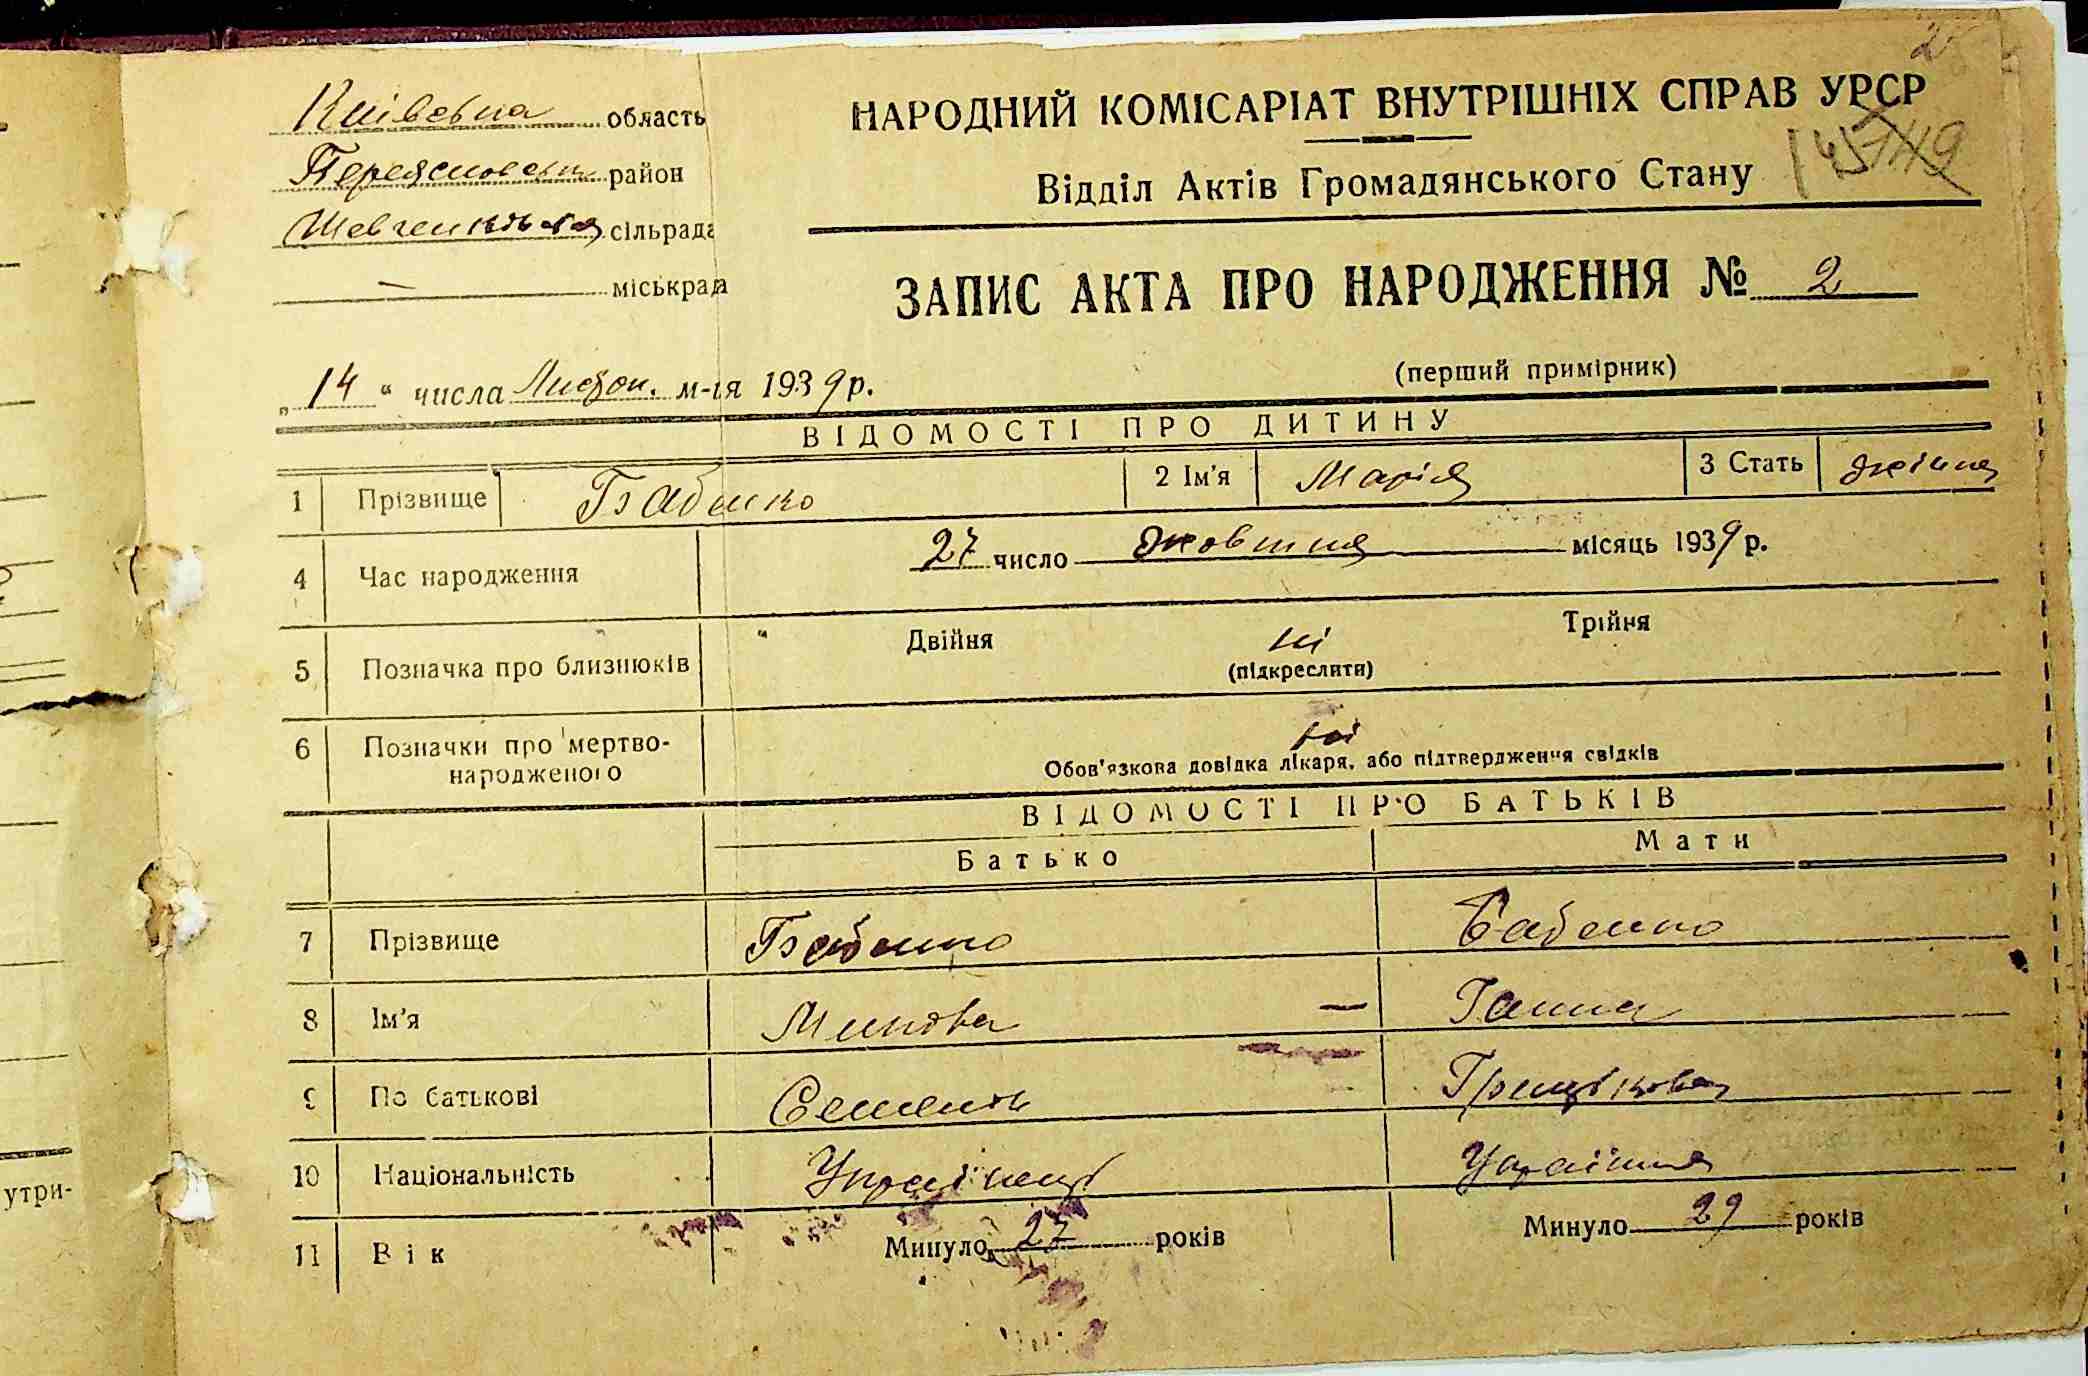 2
Київська область
НАРОДНИЙ КОМІСАРІАТ ВНУТРІШНІХ СПРАВ УРСР
Переяславськ. район
Відділ Актів Громадянського Стану
145 149
Шевченківська сільрада
— міськрада
ЗАПИС АКТА ПРО НАРОДЖЕННЯ № 2
(перший примірник)
„14“ числа Листоп. м-ця 1939 р.
ВІДОМОСТІ ПРО ДИТИНУ
1 Прізвище Бабенко 2 Ім'я Марія 3 Стать жіноч
4 Час народження 27 число жовтня місяць 1939 р.
5 Позначка про близнюків Двійня ні Трійня
(підкреслити)
6 Позначки про мертво-
народженого ні
Обов'язкова довідка лікаря, або підтвердження свідків
ВІДОМОСТІ ПРО БАТЬКІВ
Батько Мати
7 Прізвище Бабенко Бабенко
8 Ім'я Микола — Ганна
9 По батькові
10 Національність Українец Українка
11 Вік Минуло 27 років Минуло 29 років
утри-